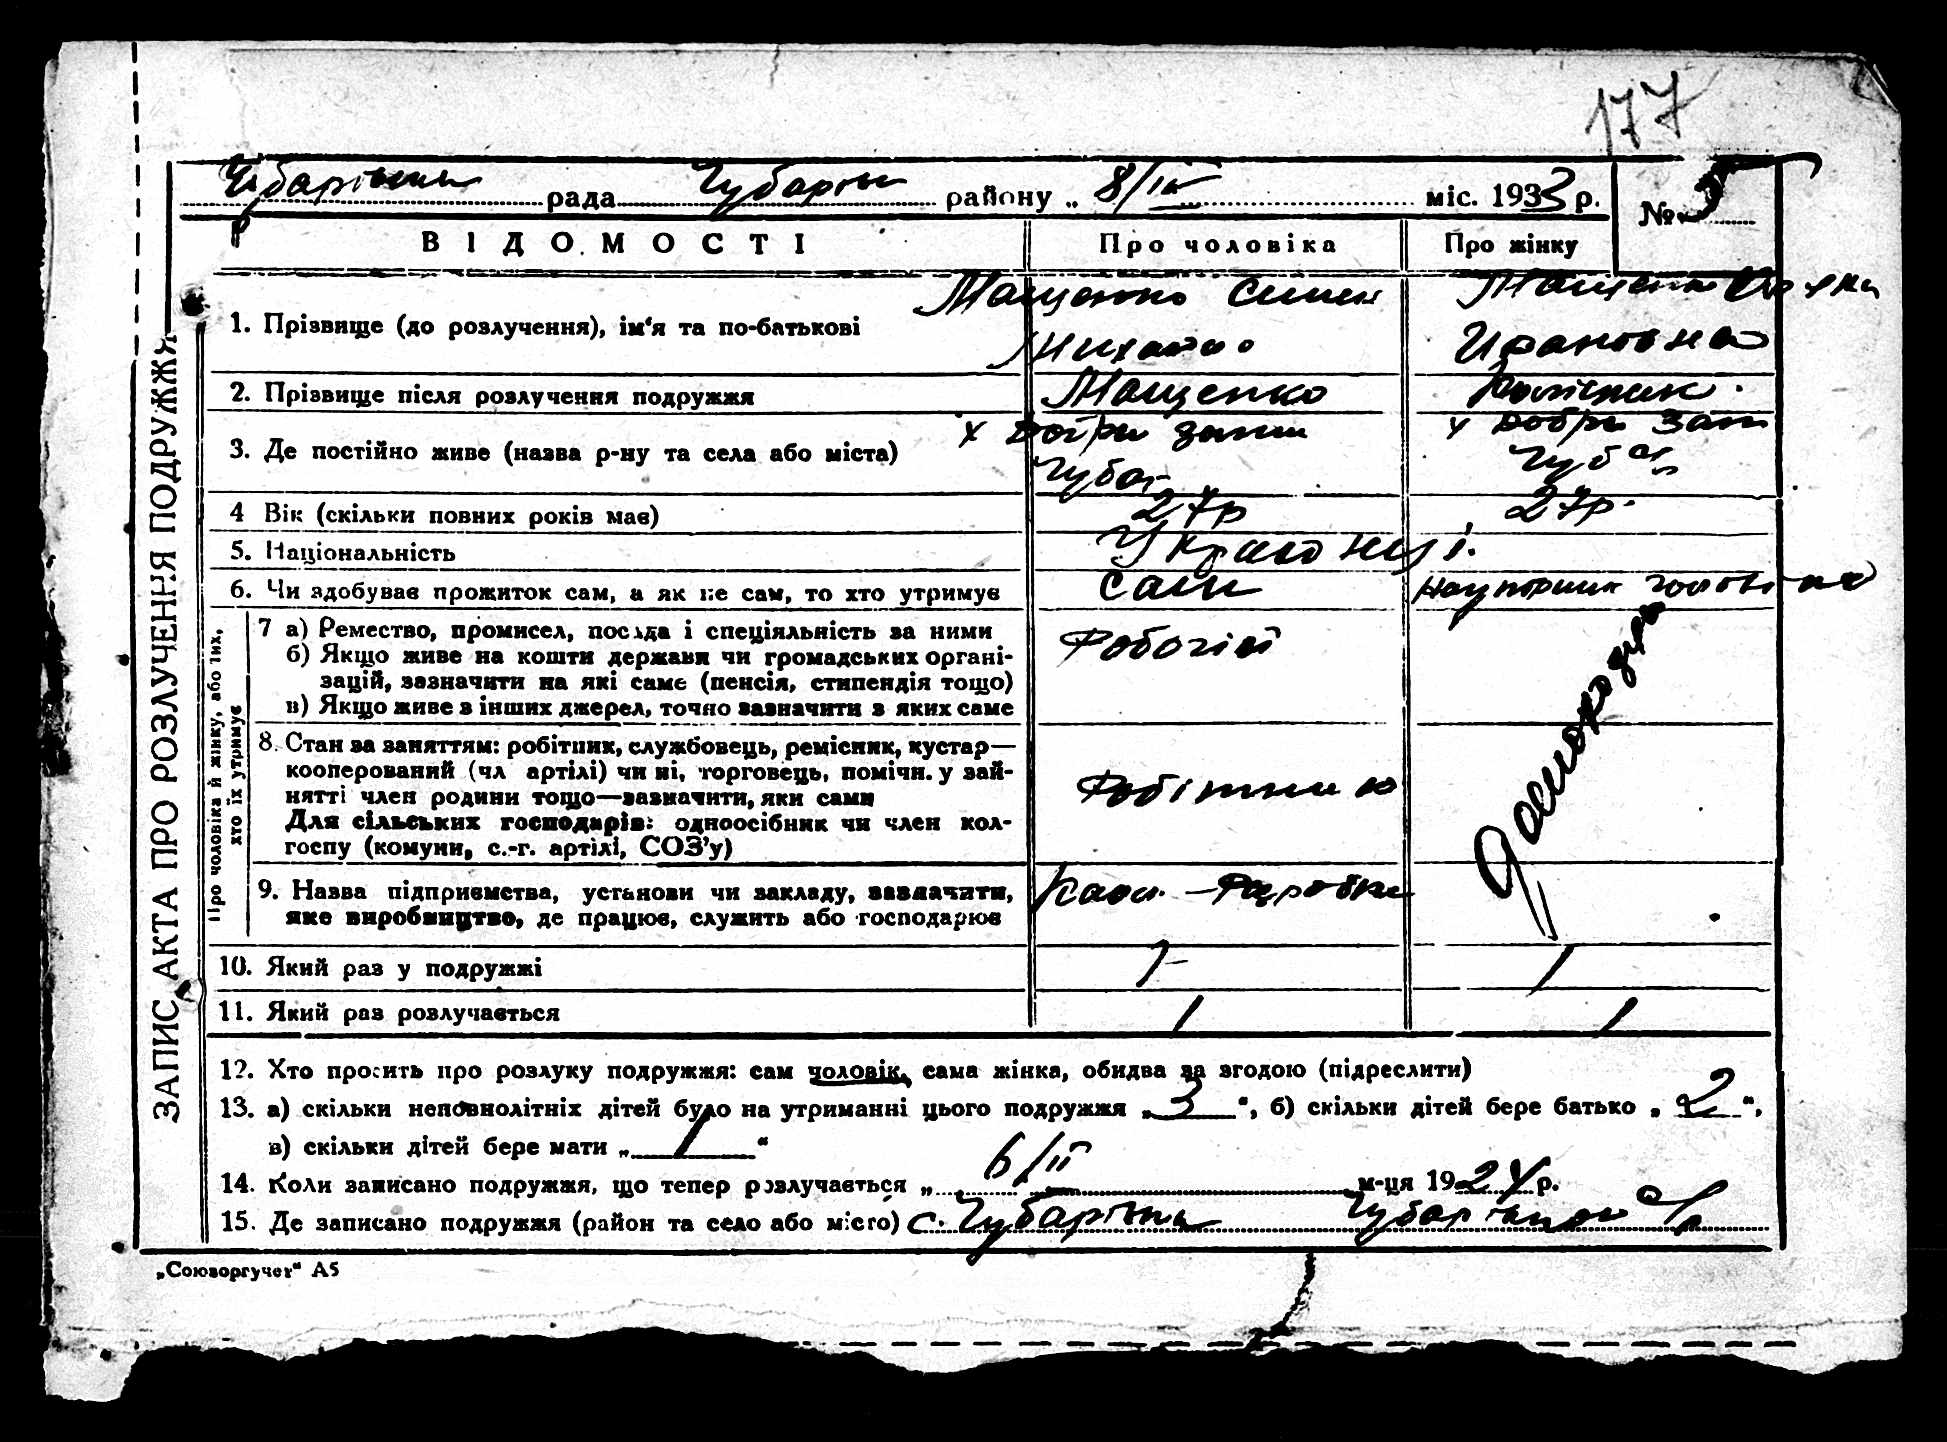 177
Чубарівська рада Чубарівськ району „ 8/ІV міс. 1933 р.
№
ВІДОМОСТІ Про чоловіка Про жінку
ЗАПИС АКТА ПРО РОЗЛУЧЕННЯ ПОДРУЖЖЯ
Мащенко Семен Мащенко
1. Прізвище (до розлучення), ім'я та по-батькові
Михайло Ивановна
2. Прізвище після розлучення подружжя Мащенко
х Добри х Добри
3. Де постійно живе (назва р-ну та села або міста)
Чубар Чубар
4 Вік (скільки повних років має) 27р 27р.
5. Національність Українці.
6. Чи здобуває прожиток сам, а як не сам, то хто утримує сам
Про чоловіка й жінку, або тих,
хто їх утримує
7 а) Ремество, промисел, посада і спеціяльність за ними Робочий
б) Якщо живе на кошти держави чи громадських органі-
зацій, зазначити на які саме (пенсія, стипендія тощо)
в) Якщо живе з інших джерел, точно зазначити з яких саме
Домохозяйка
8. Стан за заняттям: робітник, службовець, ремісник, кустар—
кооперований (чл артілі) чи ні, торговець, помічн. у зай-
нятті член родини тощо—зазначити, яки сами Робітник
Для сільських господарів: одноосібник чи член кол-
госпу (комуни, с.-г. артілі, СОЗ'у)
9. Назва підприємства, установи чи закладу, зазначити,
яке виробництво, де працює, служить або господарює
10. Який раз у подружжі 1 1
11. Який раз розлучається 1 1
12. Хто просить про розлуку подружжя: сам чоловік, сама жінка, обидва за згодою (підреслити)
13. а) скільки неповнолітніх дітей було на утриманні цього подружжя „ 3 “, б) скільки дітей бере батько „ 2 “,
в) скільки дітей бере мати „ 1 “
14. Коли записано подружжя, що тепер розлучається „ 6/ІІ м-ця 1924 р.
15. Де записано подружжя (район та село або місто) с. Чубарівка Чубарівської с/р
„Союзоргучет“ А5